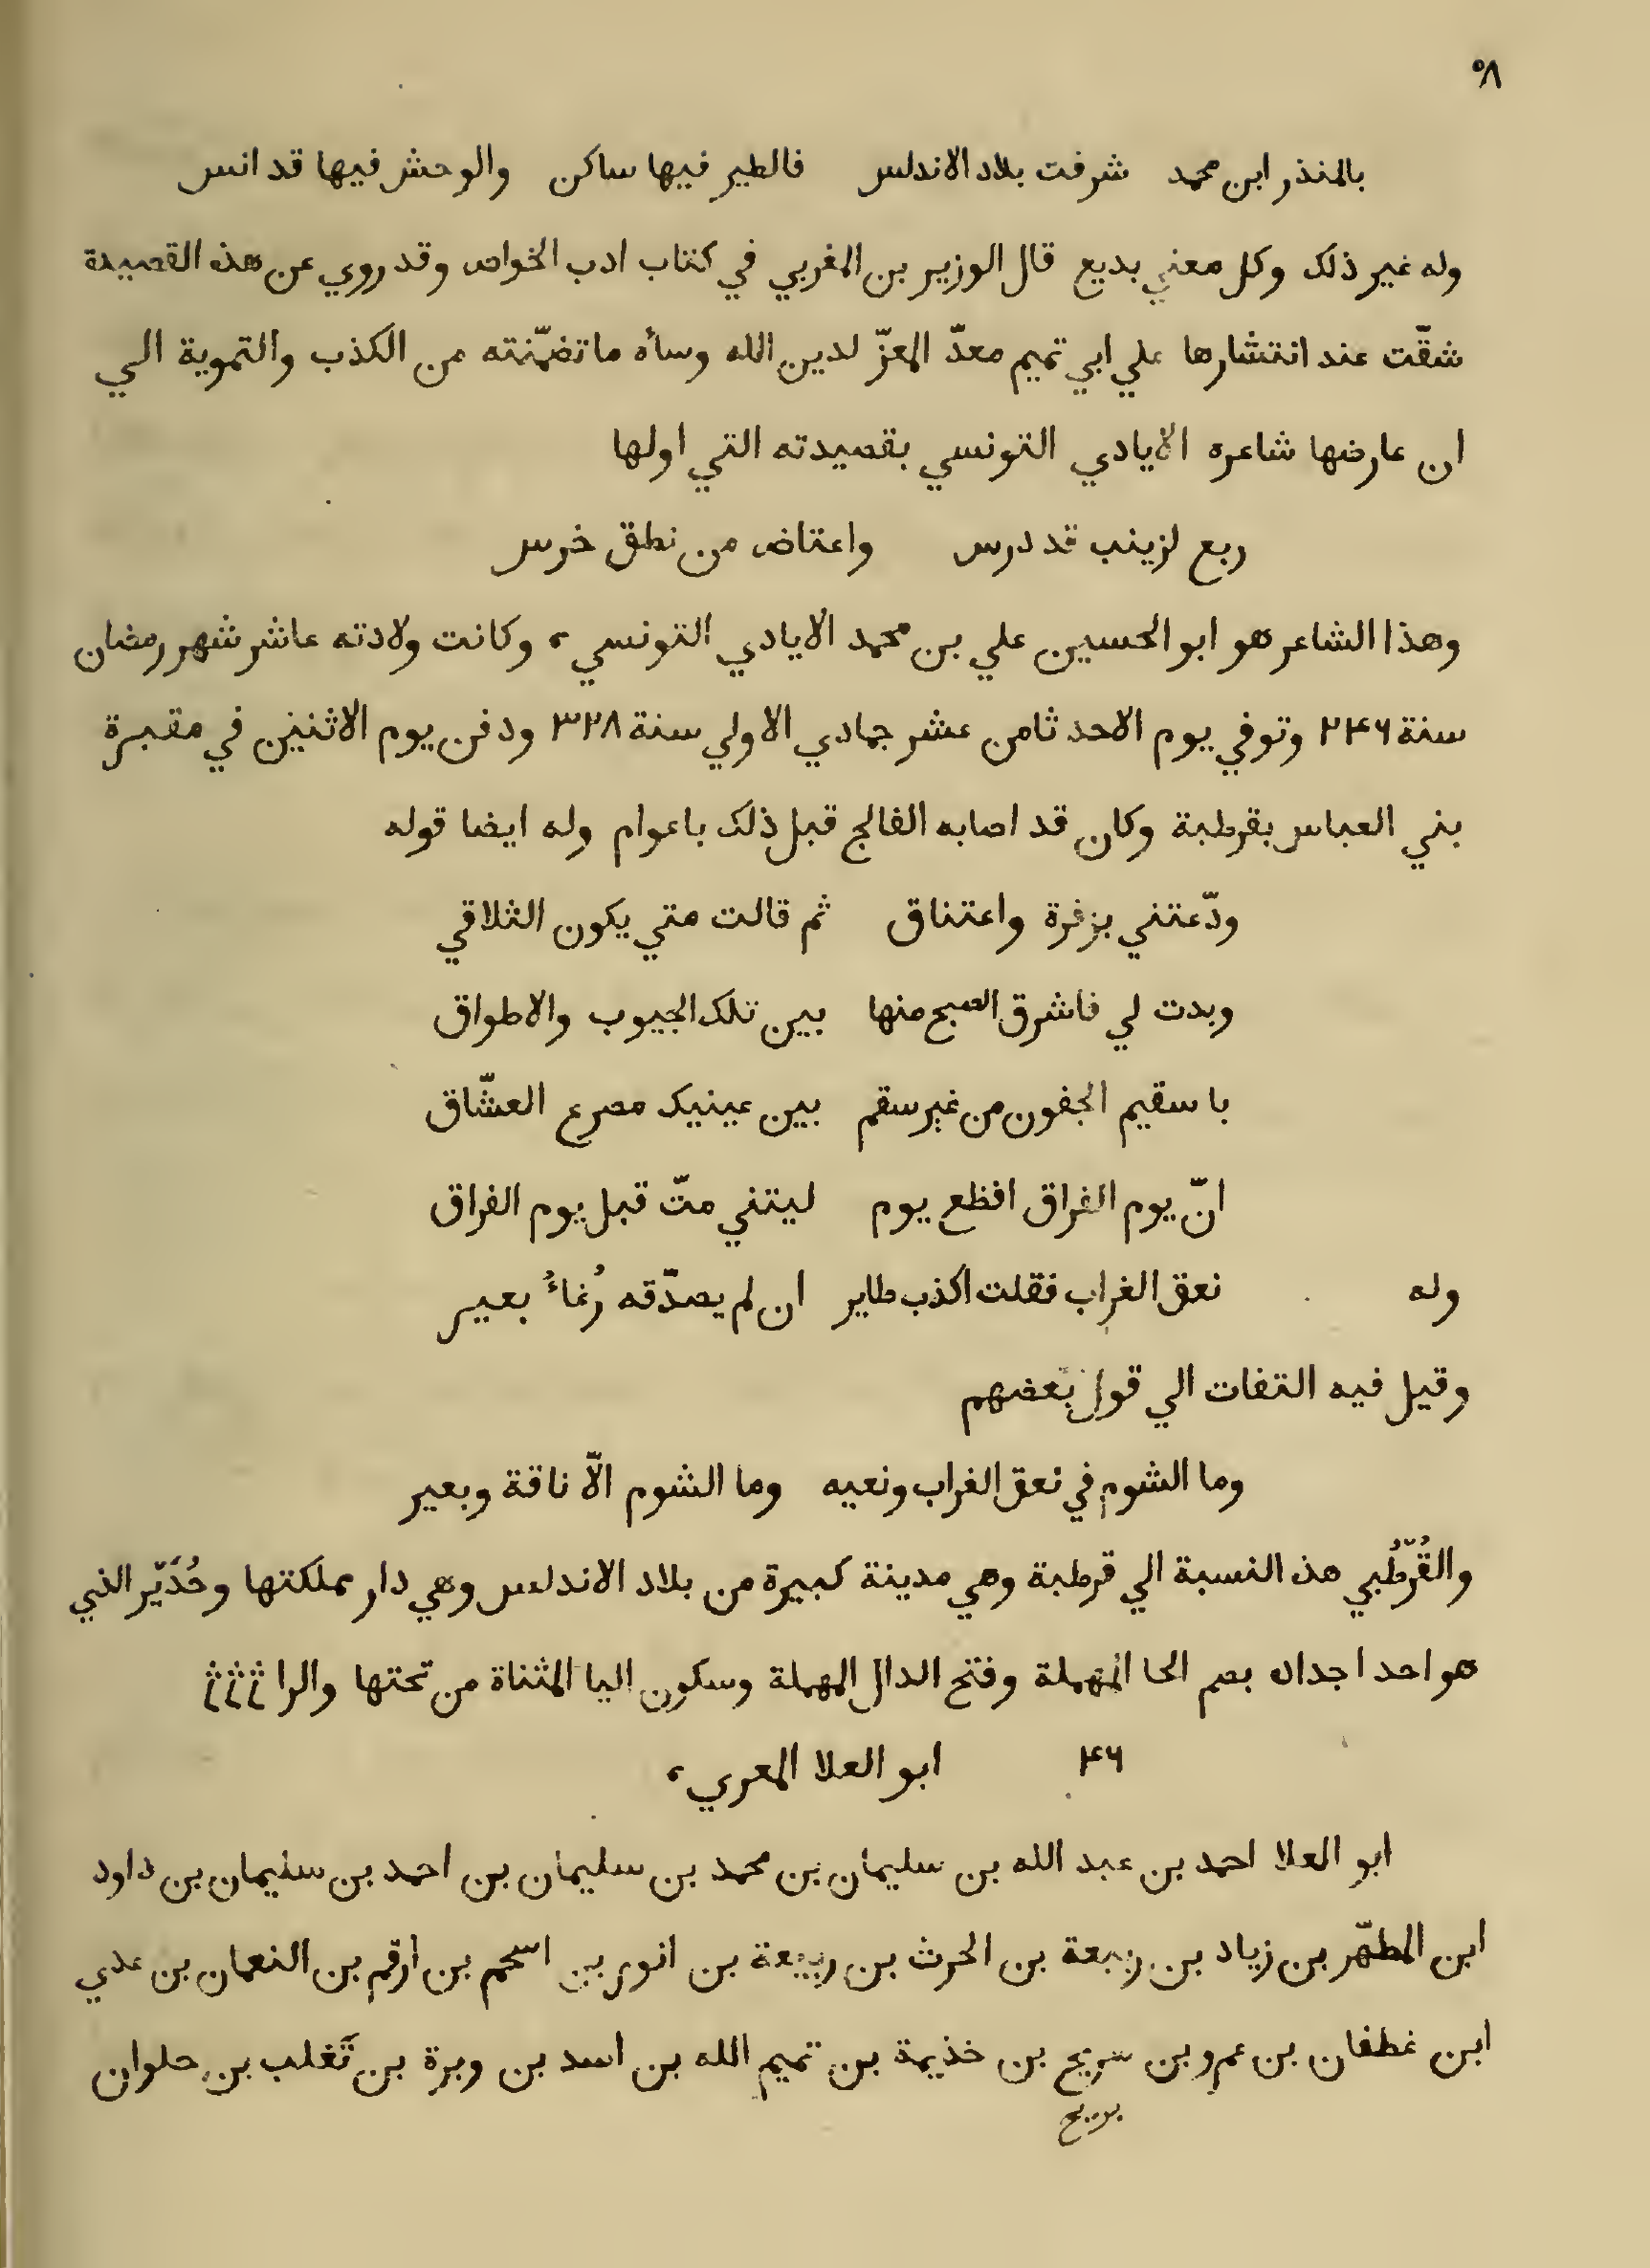 ٥٨
بالمنذر ابن محمد شرفت بلاد الاندلس فالطير فيها ساكن والوحش فيها قد انس
وله غير ذلك وكل معني بديع قال الوزير بن المغربي في كتاب ادب الخواص وقد روي عن هذه القصيدة
شقّت عند انتشارها علي ابي تميم معدّ المعزّ لدين الله وسأه ما تضمّنته من الكذب والتموية الي
ان عارضها شاعره الايادي التونسي بقصيدته التي اولها
ربع لزينب قد درس واعتاض من نطق خرس
وهذا الشاعر هو ابو الحسين علي بن محمد الايادي التونسي، وكانت ولادته عاشر شهر رمضان
سنة ٢۴۶ وتوفي يوم الاحد ثامن عشر جمادي الاولي سنة ٣٢٨ ودفن يوم الاثنين في مقبرة
بني العباس بقرطبة وكان قد اصابه الفالج قبل ذلك باعوام وله ايضا قوله
ودّعتني بزفرة واعتناق ثم قالت متي يكون التلاقي
وبدت لي فاشرق الصبح منها بين تلك الجيوب والاطواق
با سقيم الجفون من غير سقم بين عينيك مصرع العشّاق
انّ يوم الفراق افظع يوم ليتني متّ قبل يوم الفراق
وله نعق الغراب فقلت اكذب طاير ان لم يصدّقه رُغاءُ بعير
وقيل فيه التفات الي قول بعضهم
وما الشوم في نعق الغراب ونعيه وما الشوم الّا ناقة وبعير
والقُرّطُبي هذه النسبة الي قرطبة وهي مدينة كبيرة من بلاد الاندلس وهي دار مملكتها وحُدَيّر الذي
هو احد اجداده بضم الحا المهملة وفتح الدال المهملة وسكون اليا المثناة من تحتها والرا
۴۶ ابو العلا المعري،
ابو العلا احمد بن عبد الله بن سليمان بن محمد بن سليمان بن احمد بن سليمان بن داود
ابن المطهّر بن زياد بن ربيعة بن الحرث بن ربيعة بن انور بن اسحم بن ارقم بن النعمان بن عدي
ابن غطفان بن عمرو بن سريح بن خذيمة بن تميم الله بن اسد بن وبرة بن تَغلب بن حلوان
بريح